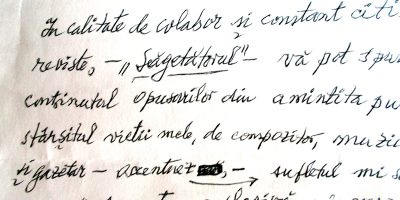 În calitate de colabor și constant citi
reviste, — „Săgetătorul" — vă pot spun
conținutul opusurilor din amintita pu
sfârșitul vieții mele, de compozitor, muzic
și gazetar — accentuez — sufletul mi s